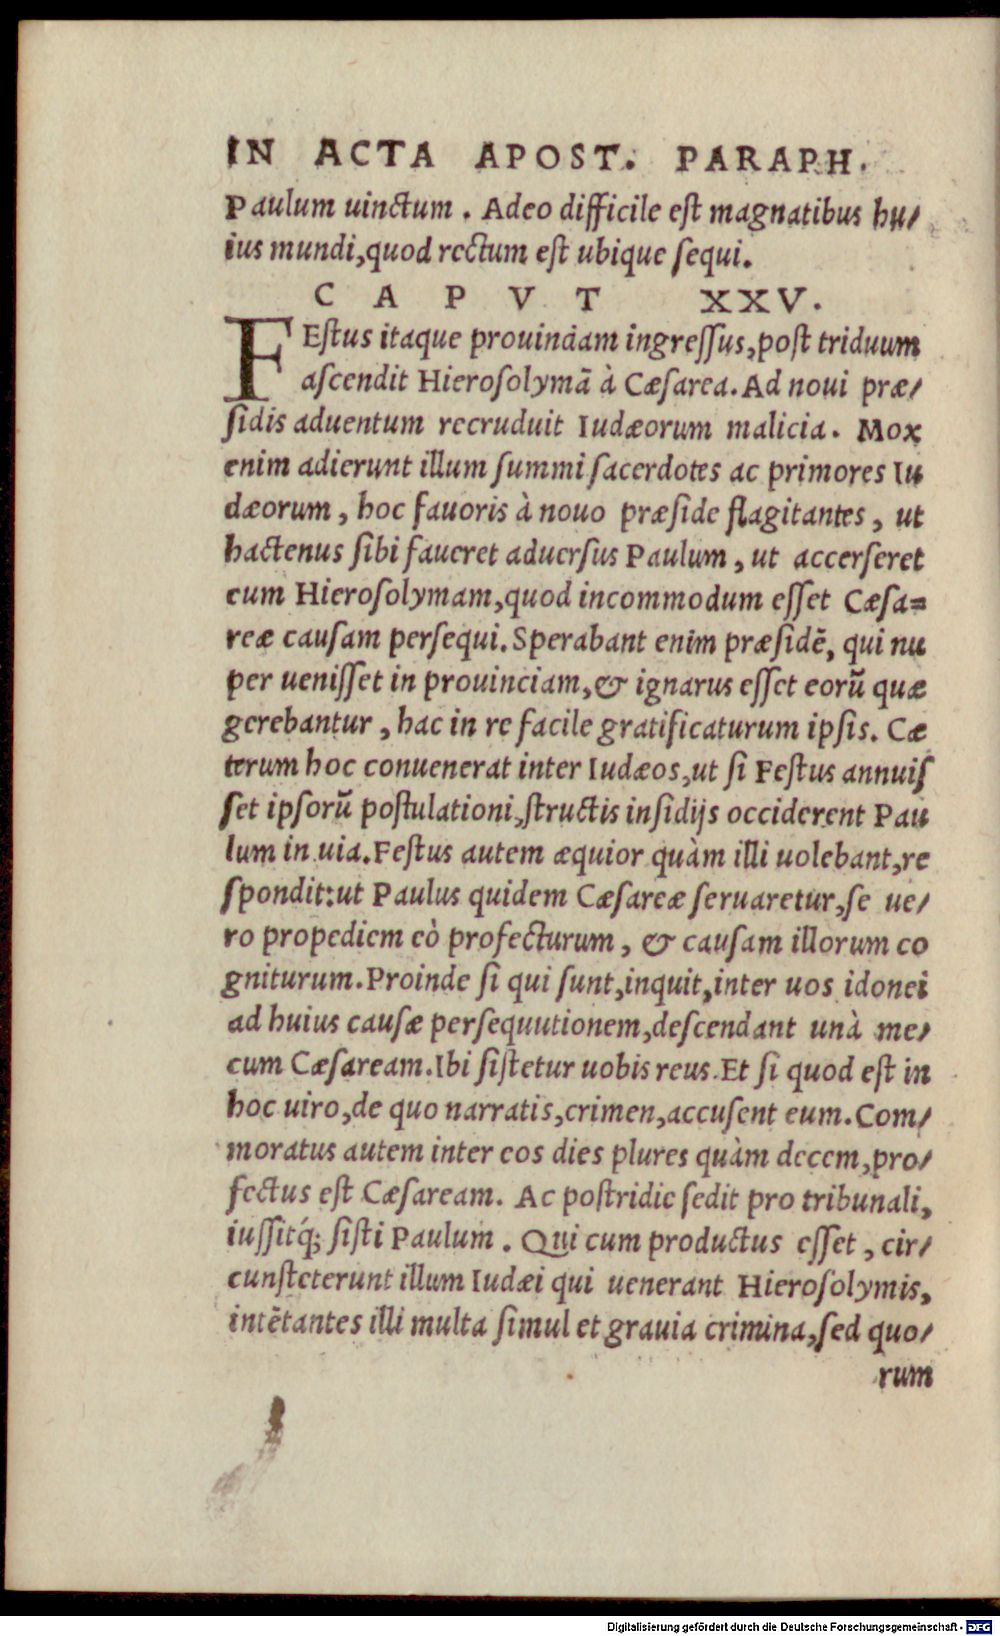 IN ACTA APOST. PARAPH.
Paulum uinctum. Adeo difficile est magnatibus hu/
ius mundi, quod rectum est ubique sequi.
CAPVT XXV.
FEstus itaque prouinciam ingressus, post triduum
ascendit Hierosolymã à Cæsarea. Ad noui præ/
sidis aduentum recruduit Iudæorum malicia. Mox
enim adierunt illum summi sacerdotes ac primores Iu
dæorum, hoc fauoris à nouo præside flagitantes, ut
hactenus sibi faueret aduersus Paulum, ut accerseret
eum Hierosolymam, quod incommodum esset Cæsa=
reæ causam persequi. Sperabant enim præsidẽ, qui nu
per uenisset in prouinciam, & ignarus esset eorũ quæ
gerebantur, hac in re facile gratificaturum ipsis. Cæ
terum hoc conuenerat inter Iudæos, ut si Festus annuis
set ipsorũ postulationi, structis insidijs occiderent Pau
lum in uia. Festus autem æquior quàm illi uolebant, re
spondit: ut Paulus quidem Cæsareæ seruaretur, se ue/
ro propediem eò profecturum, & causam illorum co
gniturum. Proinde si qui sunt, inquit, inter uos idonei
ad huius causæ persequutionem, descendant unà me/
cum Cæsaream. Ibi sistetur uobis reus. Et si quod est in
hoc uiro, de quo narratis, crimen, accusent eum. Com/
moratus autem inter eos dies plures quàm decem, pro/
fectus est Cæsaream. Ac postridie sedit pro tribunali,
iussitq́; sisti Paulum. Qui cum productus esset, cir/
cunsteterunt illum Iudæi qui uenerant Hierosolymis,
intẽtantes illi multa simul et grauia crimina, sed quo/
rum
Digitalisierung gefördert durch die Deutsche Forschungsgemeinschaft - DFG